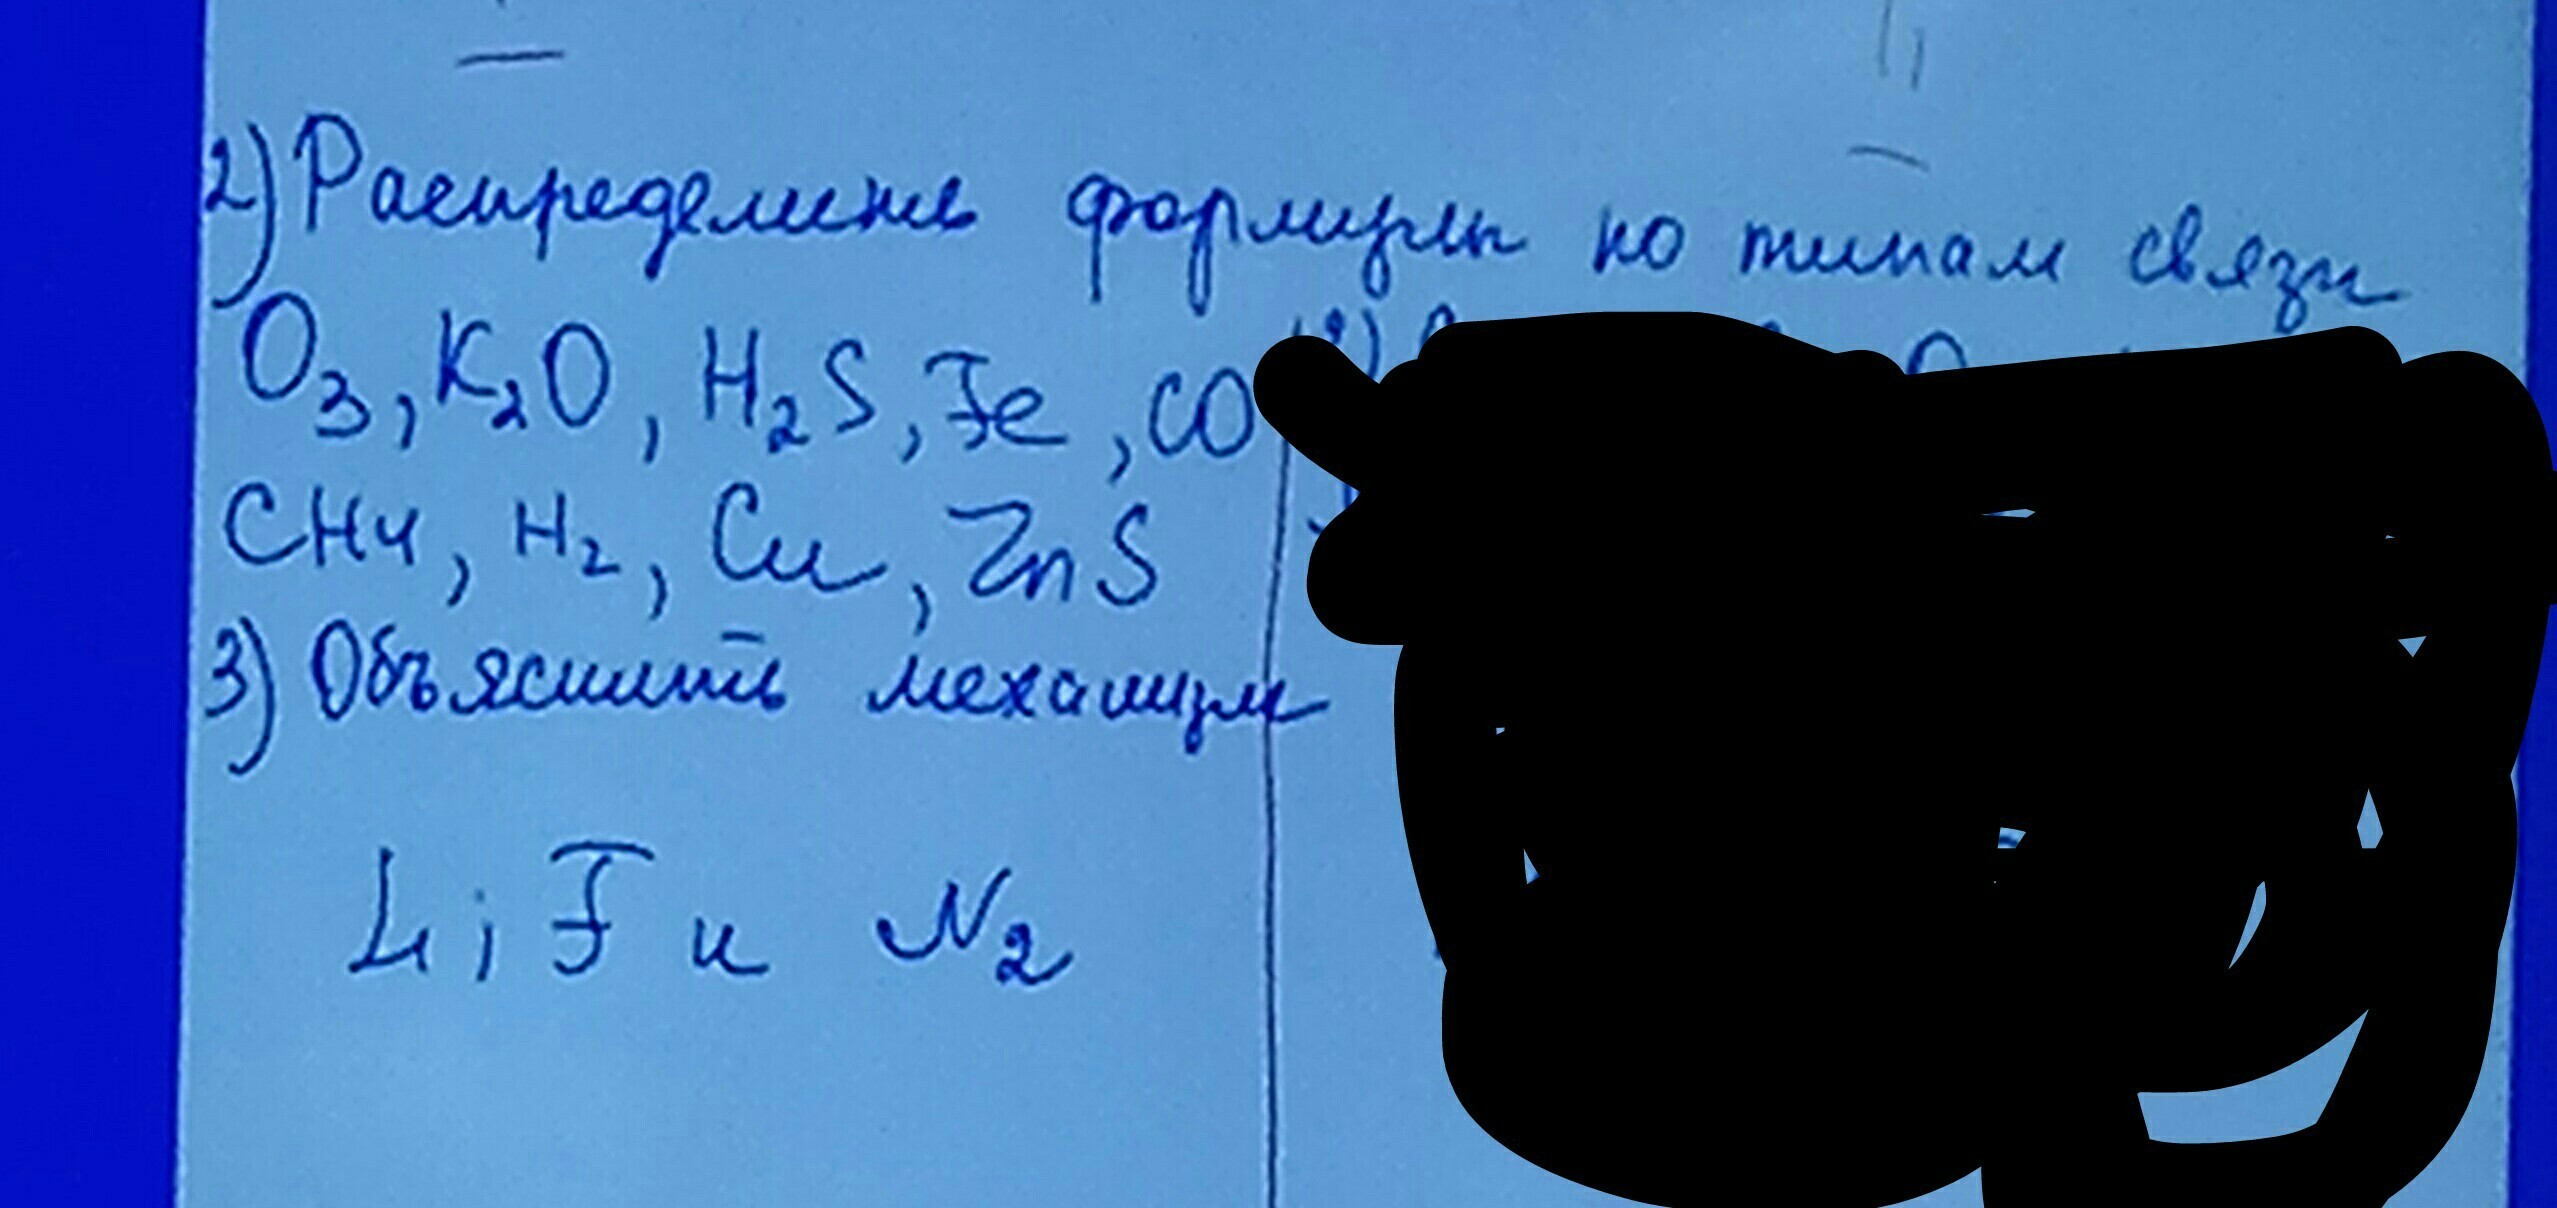 2) Распределить формулы по типам связи
O₃, K₂O, H₂S, Fe, CO
CH4, H₂, Cu, ZnS
3) Объяснить механизм
LiF и N₂
2)